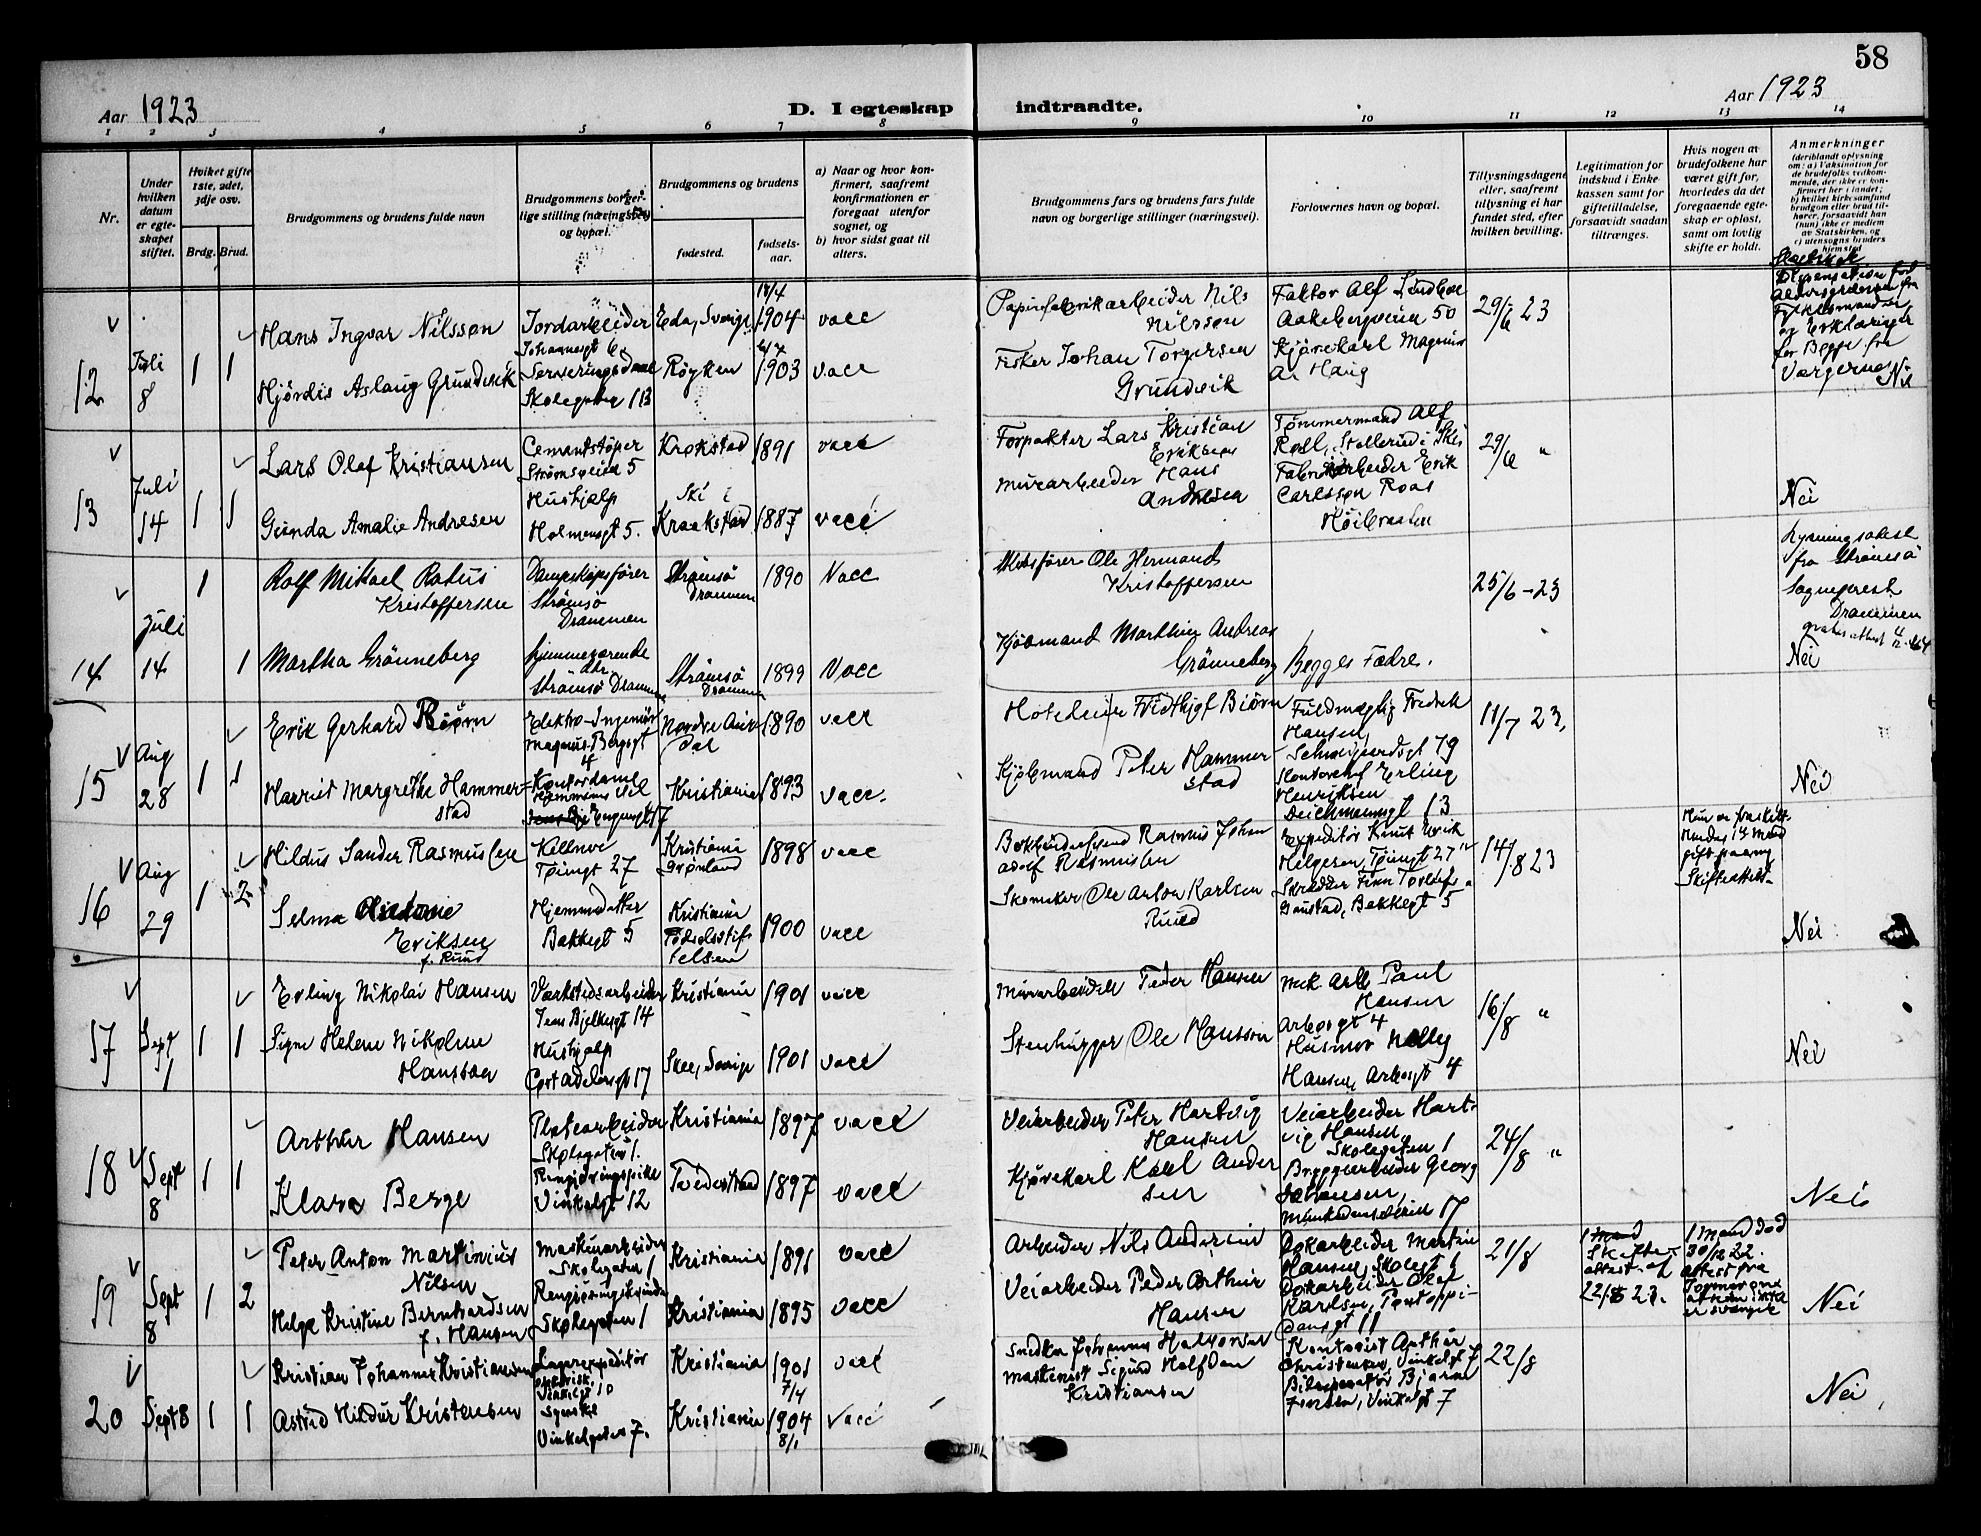 58
Aar 1923
D. I egteskap indtraadte.
Aar 1923
1 2 3 4 5 6 7 8 9 10 11 12 13 14
Nr.
Under hvilken datum er egteskapet stiftet.
Hvilket gifte 1ste, 2det, 3dje osv.
Brdg. Brud.
Brudgommens og brudens fulde navn
Brudgommens borgerlige stilling (næringsvei) og bopæl.
Brudgommens og brudens
fødested.
fødselsaar.
a) Naar og hvor konfirmert, saafremt konfirmationen er foregaat utenfor sognet, og
b) hvor sidst gaat til alters.
Brudgommens fars og brudens fars fulde navn og borgerlige stillinger (næringsvei).
Forlovernes navn og bopæl.
Tillysningsdagene eller, saafremt tillysning ei har fundet sted, efter hvilken bevilling.
Legitimation for indskud i Enkekassen samt for giftetilladelse, forsaavidt saadan tiltrænges.
Hvis nogen av brudefolkene har været gift før, hvorledes da det foregaaende egteskap er opløst, samt om lovlig skifte er holdt.
Anmerkninger (deriblandt oplysning om: a) Vaksination for de brudefolks vedkommende, der ikke er konfirmert her i landet; b) hvilket kirkesamfund brudgom eller brud tilhører, forsaavidt han (hun) ikke er medlem av Statskirken, og c) utensogns bruders hjemsted
12 Juli 8 1 1
Hans Ingvar Nilsson
Jordarbeider
Johannesgt 6
Eda, Sverige
18/4
1904
vacc
Papirfabrikarbeider Nils
Nilsson
Faktor Alf Lindboe
Aakebergveien 50
29/6 23
Dispensation for
Aldersgrænsen fra
Fylkesmanden
og Erklæringer
for Begge fra
Vergerne Nei
Hjørdis Aslaug Grundvik
Serveringsdame
Skolegaten 13
Røyken
1903
vacc
Fisker Johan Torgersen
Grundvik
Kjørekarl Magnus
Haug
13 Juli 14 1 1
Lars Olaf Kristiansen
Cementstøper
Strømsveien 5
Krokstad
1891
vacc
Forpakter Lars Kristian
Eriksen
Tømmermand Alf
Roll, Stallerud i Ski
29/6 "
Gunda Amalie Andresen
Hushjælp
Holmensgt 5.
Ski i
Kraakstad
1887
vacc
Murarbeider Hans
Andresen
Fabrikarbeider Erik
Carlsson Roas
Høibraaten
Nei
14 Juli 14 1 1
Rolf Mikael Ratus
Kristoffersen
Dampskipsfører
Strømsø
Drammen
Strømsø
Drammen
1890
Vacc
Skibsfører Ole Hermand
Kristoffersen
25/6-23
Lysningsattest
fra Strømsø
Sogneprest
Drammen
Martha Grønneberg
hjemmeværende
dtr.
Strømsø Drammen
Strømsø
Drammen
1899
Vacc
Kjøbmand Marthin Andreas
Grønneberg
Begges Fædre.
Nei
15 Aug 28 1 1
Erik Gerhard Biørn
Elektro-Ingeniør
Magnus Bergsgt
4
Nordre Aur-
dal
1890
vacc
Hoteleier Fridthjof Biørn
Fuldmægtig Fredrik
Hansen,
Schweigaardsgt 79
11/7 23.
Harriet Margrethe Hammer-
stad
Kontordame
Kristiania
1893
vacc.
Kjøbmand Peter Hammer
stad
Kontorchef Erling
Henriksen
Deichmannsgt 13
Nei
16 Aug 29 1 2
Hildus Sander Rasmussen
Kellner
Tøiengt 27
Kristiania
Grønland
1898
vacc
Adolf Rasmussen
Expeditør Knut Erik
Helgesen, Tøiengt 27
14/8 23
Skifteattest-
Selma
Eriksen
f. Ruud
Hjemmedatter
Bakkegt 5
Kristiania
Fødselsstif-
telsen
1900
vacc
Skomaker Ole Anton Karlsen
Ruud
Skrædder Finn Torleif
Gaustad, Bakkegt 5
Nei
17 Sept 1 1 1
Erling Nikolai Hansen
Værkstedsarbeider
Jens Bjelkesgt 14
Kristiania
1901
vacc
Murarbeider Peder Hansen
Mek Arb Paul
Hansen
Arbosgt 4
16/8 "
Signe Helene Nikoline
Hansson
Hushjælp
Cort Adelersgt 17
Skee, Sverige
1901
vacc
Stenhugger Ole Hansson
Husmor Nelly
Hansen, Arbosgt 4
Nei
18 Sept 8 1 1
Arthur Hansen
Platearbeider
Skolegaten 1.
Kristiania
1897
vacc
Veiarbeider Peter Hartvig
Hansen
Veiarbeider Hart-
vig Hansen,
Skolegaten 1
24/8 "
Klara Berge
Rengjøringspike
Vinkelgt 12
Tvedestrand
1897
vacc
Kjørekarl Karl Ander
sen
Bryggearbeider Georg
Johansen,
Munkedamsveien 17
Nei
19 Sept 8 1 2
Peter Anton Martinius
Nilsen
Maskinarbeider
Skolegaten 1
Kristiania
1891
vacc
Arbeider Nils Andersen
Dokarbeider Martin
Hansen, Skolegt 1
21/8
Skifte-
attest af
22/8 23.
1 Mand død
30/12 22.
Attest fra
Jormor om
at hun ikke
er svanger
Helga Kristine Bernhardsen
f. Hansen
Rengjøringskvinde
Skolegaten 1
Kristiania
1895
vacc
Veiarbeider Peder Arthur
Hansen
Dokarbeider Olaf
Karlsen, Pontoppi-
dansgt 11
Nei
20 Sept 8 1 1
Kristian Johannes Kristiansen
Lagerexpeditør
Vinkelgt 10
Kristiania
1901
7/4
vacc
Snedker Johannes Halvorsen
Kontorist Arthur
Christensen, Vinkelgt 7
22/8
Astrid Hildur Kristensen
Syerske
Vinkelgaten 7.
Kristiania
1904
8/1
vacc
Maskinist Sigurd Halfdan
Kristiansen
Bjarne
Vinkelgt 7
Nei